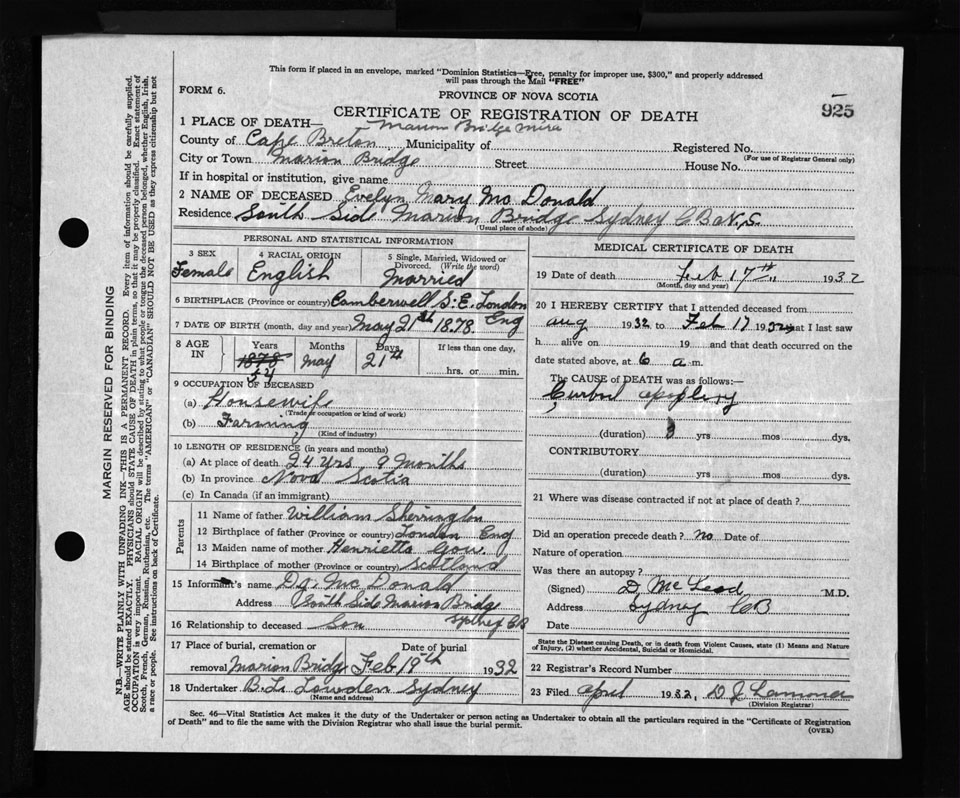 This form if placed in an envelope, marked "Dominion Statistics—Free, penalty for improper use, $300," and properly addressed
will pass through the Mail "FREE"
FORM 6.
PROVINCE OF NOVA SCOTIA
925
CERTIFICATE OF REGISTRATION OF DEATH
1 PLACE OF DEATH— Marion Bridge Mira
County of Cape Breton Municipality of Registered No.
(For use of Registrar General only)
City or Town Marion Bridge Street House No.
If in hospital or institution, give name
2 NAME OF DECEASED Evelyn Mary Mc Donald
Residence South Side Marion Bridge Sydney C B N.S.
(Usual place of abode)
PERSONAL AND STATISTICAL INFORMATION
3 SEX 4 RACIAL ORIGIN 5 Single, Married, Widowed or
Divorced. (Write the word)
Female English Married
6 BIRTHPLACE (Province or country) Camberwell S.E. London
Eng
7 DATE OF BIRTH (month, day and year) May 21st 1878.
8 AGE IN Years Months Days If less than one day,
1878 May 21st
54 hrs. or min.
9 OCCUPATION OF DECEASED
(a) Housewife
(Trade or occupation or kind of work)
(b) Farming
(Kind of industry)
10 LENGTH OF RESIDENCE (in years and months)
(a) At place of death 24 Yrs 9 Months
(b) In province Nova Scotia
(c) In Canada (if an immigrant)
Parents
11 Name of father William Sherrington
12 Birthplace of father (Province or country) London Eng
13 Maiden name of mother Henrietta Gow.
14 Birthplace of mother (Province or country) Scotland
15 Informant's name D.A. Mc Donald
Address South Side Marion Bridge
16 Relationship to deceased Son
17 Place of burial, cremation or Date of burial
removal Marion Bridge Feb 19th 1932
18 Undertaker B.L. Lowden Sydney
(Name and address)
MEDICAL CERTIFICATE OF DEATH
19 Date of death Feb 17th 1932
(Month, day and year)
20 I HEREBY CERTIFY that I attended deceased from
Aug 1932 to Feb 17 1932 that I last saw
h alive on 19 and that death occurred on the
date stated above, at 6 a m.
The CAUSE of DEATH was as follows:—
(duration) yrs mos dys.
CONTRIBUTORY
(duration) yrs mos dys.
21 Where was disease contracted if not at place of death?
Did an operation precede death? no Date of
Nature of operation
Was there an autopsy?
(Signed) D. McLeod M.D.
Address Sydney CB
Date
State the Disease causing Death, or in death from Violent Causes, state (1) Means and Nature
of Injury, (2) whether Accidental, Suicidal or Homicidal.
22 Registrar's Record Number
23 Filed April 1932,
(Division Registrar)
Sec. 46—Vital Statistics Act makes it the duty of the Undertaker or person acting as Undertaker to obtain all the particulars required in the "Certificate of Registration
of Death" and to file the same with the Division Registrar who shall issue the burial permit.
(OVER)
MARGIN RESERVED FOR BINDING
N.B.—WRITE PLAINLY WITH UNFADING INK—THIS IS A PERMANENT RECORD. Every item of information should be carefully supplied.
AGE should be stated EXACTLY. PHYSICIANS should STATE CAUSE OF DEATH in plain terms, so that it may be properly classified. Exact statement of
OCCUPATION is very important. RACIAL ORIGIN will be described by stating to what people or tongue the deceased person belonged, whether English, Irish,
Scotch, French, German, Russian, Ruthenian, etc. The terms "AMERICAN" or "CANADIAN" SHOULD NOT BE USED as they express citizenship but not
a race or people. See instructions on back of Certificate.